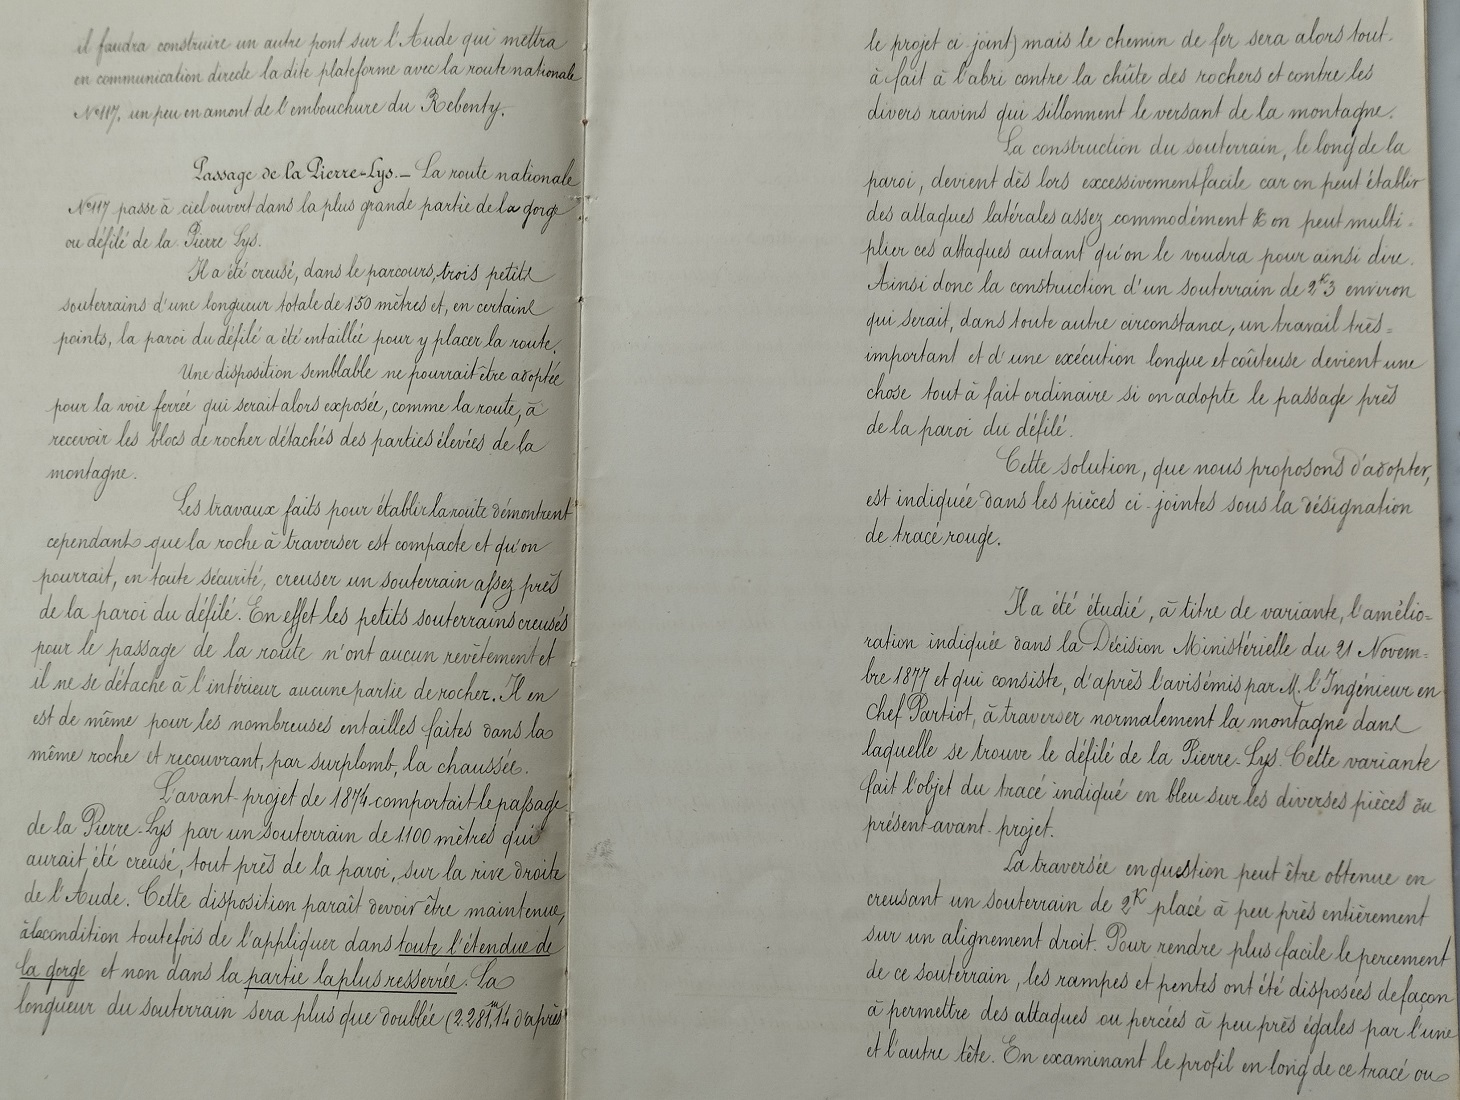 il faudra construire un autre pont sur l'Aude qui mettra
en communication directe la dite plateforme avec la route nationale
N° 117, un peu en amont de l'embouchure du Rebenty.
Passage de la Pierre-Lys. – La route nationale
N° 117 passe à ciel ouvert dans la plus grande partie de la gorge
ou défilé de la Pierre Lys.
Il a été creusé, dans le parcours, trois petits
souterrains d'une longueur totale de 150 mètres et, en certains
points, la paroi du défilé a été entaillée pour y placer la route.
Une disposition semblable ne pourrait être adoptée
pour la voie ferrée qui serait alors exposée, comme la route, à
recevoir les blocs de rocher détachés des parties élevées de la
montagne.
Les travaux faits pour établir la route démontrent
cependant que la roche à traverser est compacte et qu'on
pourrait, en toute sécurité, creuser un souterrain assez près
de la paroi du défilé. En effet les petits souterrains creusés
pour le passage de la route n'ont aucun revêtement et
il ne se détache à l'intérieur aucune partie de rocher. Il en
est de même pour les nombreuses entailles faites dans la
même roche et recouvrant, par surplomb, la chaussée.
L'avant-projet de 1874 comportait le passage
de la Pierre-Lys par un souterrain de 1100 mètres qui
aurait été creusé, tout près de la paroi, sur la rive droite
de l'Aude. Cette disposition paraît devoir être maintenue,
à la condition toutefois de l'appliquer dans toute l'étendue de
la gorge et non dans la partie la plus resserrée. La
longueur du souterrain sera plus que doublée (2.281,m14 d'après
le projet ci-joint) mais le chemin de fer sera alors tout-
à fait à l'abri contre la chûte des rochers et contre les
divers ravins qui sillonnent le versant de la montagne.
La construction du souterrain, le long de la
paroi, devient dès lors excessivement facile car on peut établir
des attaques latérales assez commodément & on peut multi-
plier ces attaques autant qu'on le voudra pour ainsi dire.
Ainsi donc la construction d'un souterrain de 2K3 environ
qui serait, dans toute autre circonstance, un travail très=
important et d'une exécution longue et coûteuse devient une
chose tout à fait ordinaire si on adopte le passage près
de la paroi du défilé.
Cette solution, que nous proposons d'adopter,
est indiquée dans les pièces ci-jointes sous la désignation
de tracé rouge.
Il a été étudié, à titre de variante, l'amélio=
ration indiquée dans la Décision Ministérielle du 21 Novem=
bre 1877 et qui consiste, d'après l'avis émis par M. l'Ingénieur en
chef Partiot, à traverser normalement la montagne dans
laquelle se trouve le défilé de la Pierre-Lys. Cette variante
fait l'objet du tracé indiqué en bleu sur les diverses pièces du
présent avant-projet.
La traversée en question peut être obtenue en
creusant un souterrain de 2K placé à peu près entièrement
sur un alignement droit. Pour rendre plus facile le percement
de ce souterrain, les rampes et pentes ont été disposées de façon
à permettre des attaques ou percées à peu près égales par l'une
et l'autre tête. En examinant le profil en long de ce tracé ou